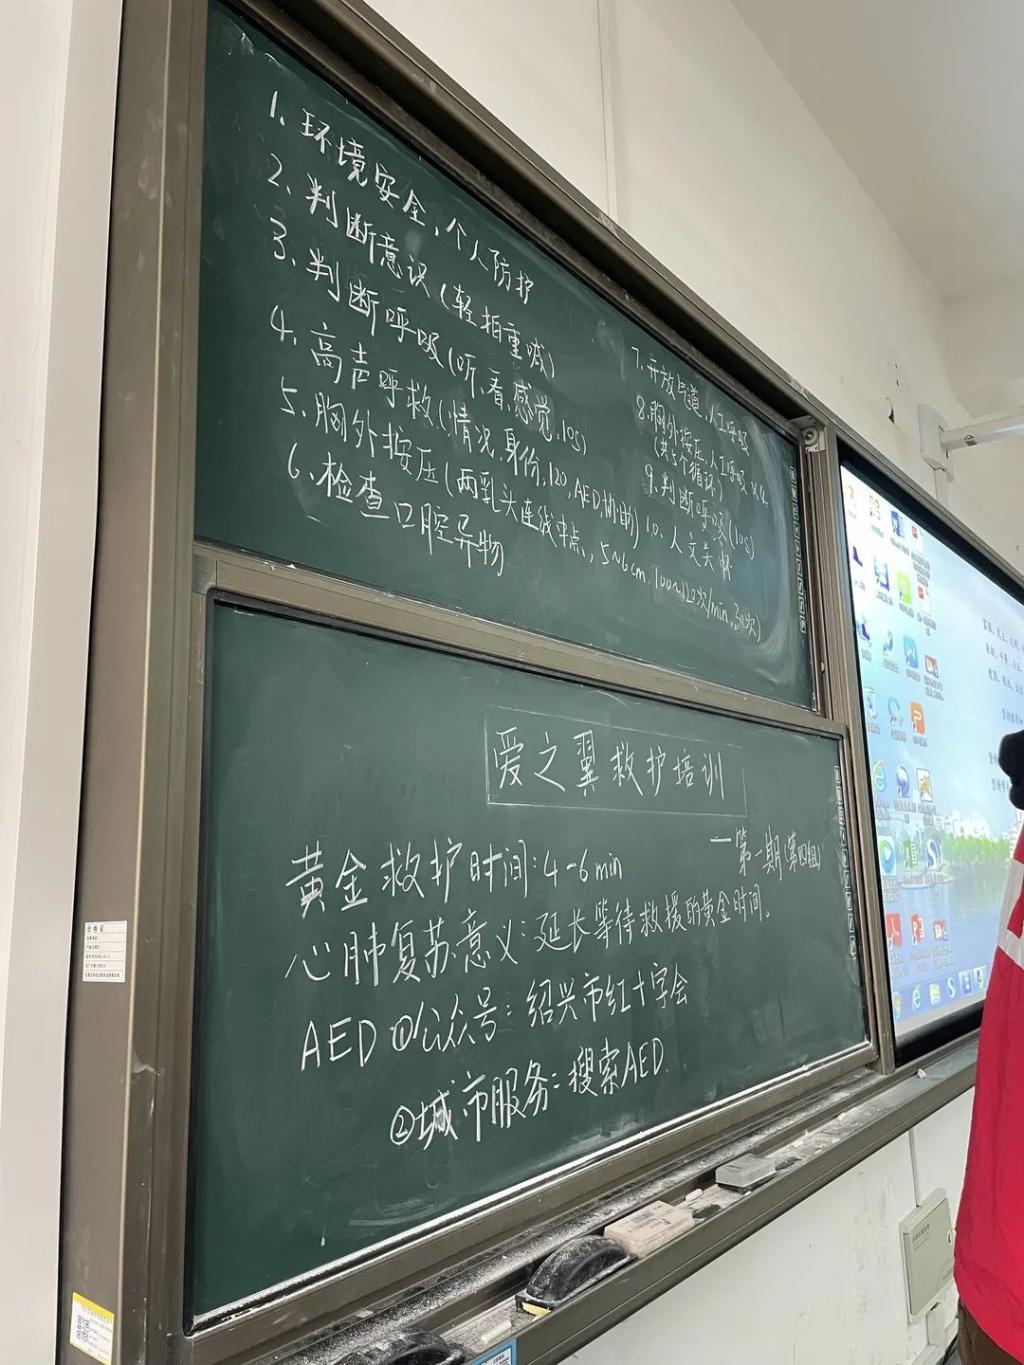 1. 环境安全、个人防护
2. 判断意识(轻拍重喊)
3. 判断呼吸(听、看、感觉、10s)
4. 高声呼救(情况,身份,120,AED,协助)
5. 胸外按压(两乳头连线中点,5~6cm,100~120次/min,30次)
6. 检查口腔异物
7. 开放气道,人工呼吸
8. 胸外按压,人工呼吸×4
(共5个循环)
9. 判断呼吸(10s)
10. 人文关怀
爱之翼救护培训
—第一期(第四组)
黄金救护时间:4-6min
心肺复苏意义:延长等待救援的黄金时间。
AED ①公众号:绍兴市红十字会
②城市服务:搜索AED
合格证